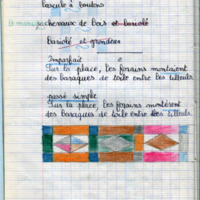 bascule à boutons
le manège chevaux de bois et bariolé
Bariolé et grandeur
Imparfait
Sur la place, les forains montaient
des baraques de toile entre les tilleuls.
passé simple
Sur la place, les forains montèrent
des baraques de toile entre les tilleuls.